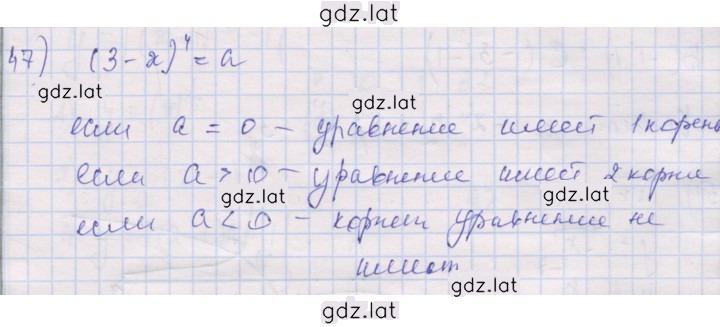 gdz.lat
47) (3-x)⁴ = a
gdz.lat
gdz.lat
если a = 0 – уравнение имеет 1 корень
gdz.lat
если a > 0 – уравнение имеет 2 корня
gdz.lat
gdz.lat
если a < 0 – корней уравнение не
имеет
gdz.lat
gdz.lat